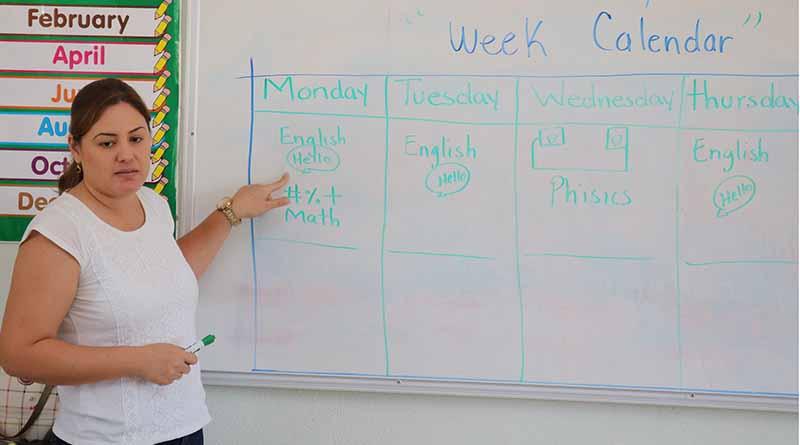 February
April
Ju
Au
Octo
Dece
" Week Calendar "
Monday Tuesday Wednesday Thursday
English
Hello
#%+
Math
English
Hello
Phisics
English
Hello